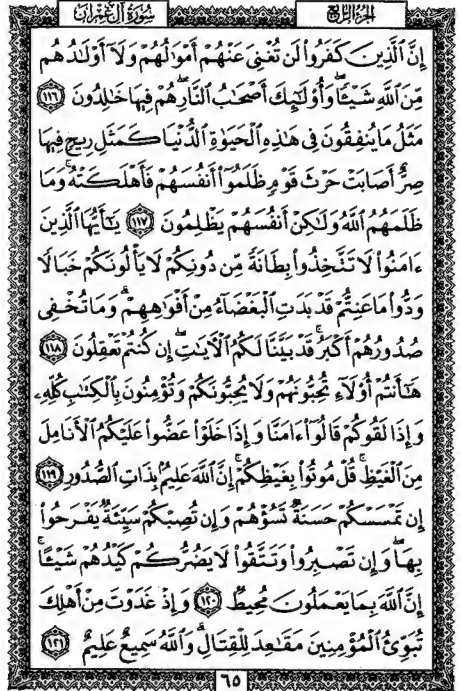 الجزء الرابع سورة آل عمران
إِنَّ الَّذِينَ كَفَرُوا لَن تُغْنِيَ عَنْهُمْ أَمْوَالُهُمْ وَلَا أَوْلَادُهُم
مِّنَ اللَّهِ شَيْئًا وَأُولَٰئِكَ أَصْحَابُ النَّارِ هُمْ فِيهَا خَالِدُونَ ١١٦
مَثَلُ مَا يُنفِقُونَ فِي هَٰذِهِ الْحَيَوٰةِ الدُّنْيَا كَمَثَلِ رِيحٍ فِيهَا
صِرٌّ أَصَابَتْ حَرْثَ قَوْمٍ ظَلَمُوا أَنفُسَهُمْ فَأَهْلَكَتْهُ وَمَا
ظَلَمَهُمُ اللَّهُ وَلَٰكِنْ أَنفُسَهُمْ يَظْلِمُونَ ١١٧ يَٰأَيُّهَا الَّذِينَ
ءَامَنُوا لَا تَتَّخِذُوا بِطَانَةً مِّن دُونِكُمْ لَا يَأْلُونَكُمْ خَبَالًا
وَدُّوا مَا عَنِتُّمْ قَدْ بَدَتِ الْبَغْضَاءُ مِنْ أَفْوَٰهِهِمْ وَمَا تُخْفِي
صُدُورُهُمْ أَكْبَرُ قَدْ بَيَّنَّا لَكُمُ الْآيَٰتِ إِن كُنتُمْ تَعْقِلُونَ ١١٨
هَٰأَنتُمْ أُولَاءِ تُحِبُّونَهُمْ وَلَا يُحِبُّونَكُمْ وَتُؤْمِنُونَ بِالْكِتَٰبِ كُلِّهِ
وَإِذَا لَقُوكُمْ قَالُوا ءَامَنَّا وَإِذَا خَلَوْا عَضُّوا عَلَيْكُمُ الْأَنَامِلَ
مِنَ الْغَيْظِ قُلْ مُوتُوا بِغَيْظِكُمْ إِنَّ اللَّهَ عَلِيمٌ بِذَاتِ الصُّدُورِ ١١٩
إِن تَمْسَسْكُمْ حَسَنَةٌ تَسُؤْهُمْ وَإِن تُصِبْكُمْ سَيِّئَةٌ يَفْرَحُوا
بِهَا وَإِن تَصْبِرُوا وَتَتَّقُوا لَا يَضُرُّكُمْ كَيْدُهُمْ شَيْئًا
إِنَّ اللَّهَ بِمَا يَعْمَلُونَ مُحِيطٌ ١٢٠ وَإِذْ غَدَوْتَ مِنْ أَهْلِكَ
تُبَوِّئُ الْمُؤْمِنِينَ مَقَٰعِدَ لِلْقِتَالِ وَاللَّهُ سَمِيعٌ عَلِيمٌ ١٢١
٦٥